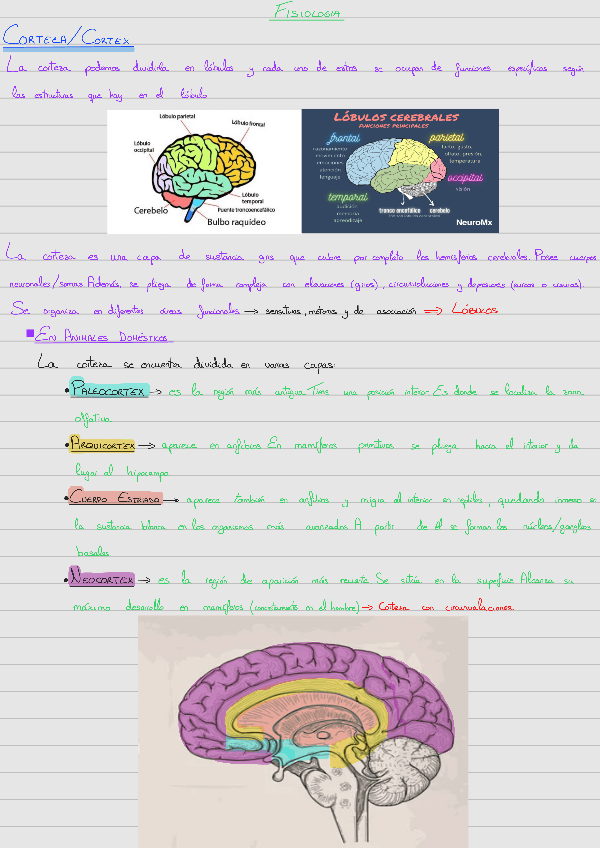 FISIOLOGIA
CORTEZA/CORTEX
La corteza podemos dividirla en lóbulos y cada uno de estos se ocupas de funciones específicas según
las estructuras que hay en el lóbulo
Lóbulo parietal
Lóbulo frontal
Lóbulo occipital
Lóbulo temporal
Puente troncoencefálico
Cerebelo
Bulbo raquídeo
LÓBULOS CEREBRALES
FUNCIONES PRINCIPALES
frontal
razonamiento
movimiento
emociones
atención
lenguaje
parietal
tacto, gusto,
olfato, presión,
temperatura
occipital
visión
temporal
audición
memoria
aprendizaje
tronco encefálico
cerebelo
NeuroMx
La corteza es una capa de sustancia gris que cubre por completo los hemisferios cerebrales. Posee cuerpos
neuronales/somas Además, se pliega de forma compleja con elevaciones (giros), circunvoluciones y depresiones (surcos o cisuras).
Se organiza en diferentes áreas funcionales → sensitivas, motoras y de asociación ⇒ LÓBULOS
EN ANIMALES DOMÉSTICOS
La corteza se encuentra dividida en varias capas:
• PALEOCORTEX → es la región más antigua Tiene una posición inferior Es donde se localiza la zona
olfativa
• ARQUICORTEX → aparece en anfibios En mamíferos primitivos se pliega hacia el interior y da
lugar al hipocampo
• CUERPO ESTRIADO → aparece también en anfibios y migra al interior en reptiles, quedando inmerso en
la sustancia blanca en los organismos más avanzados A partir de él se forman los núcleos/ganglios
basales
• NEOCORTEX → es la región de aparición más reciente Se sitúa en la superficie Alcanza su
máximo desarrollo en mamíferos (concretamente en el hombre) → Corteza con circunvalaciones